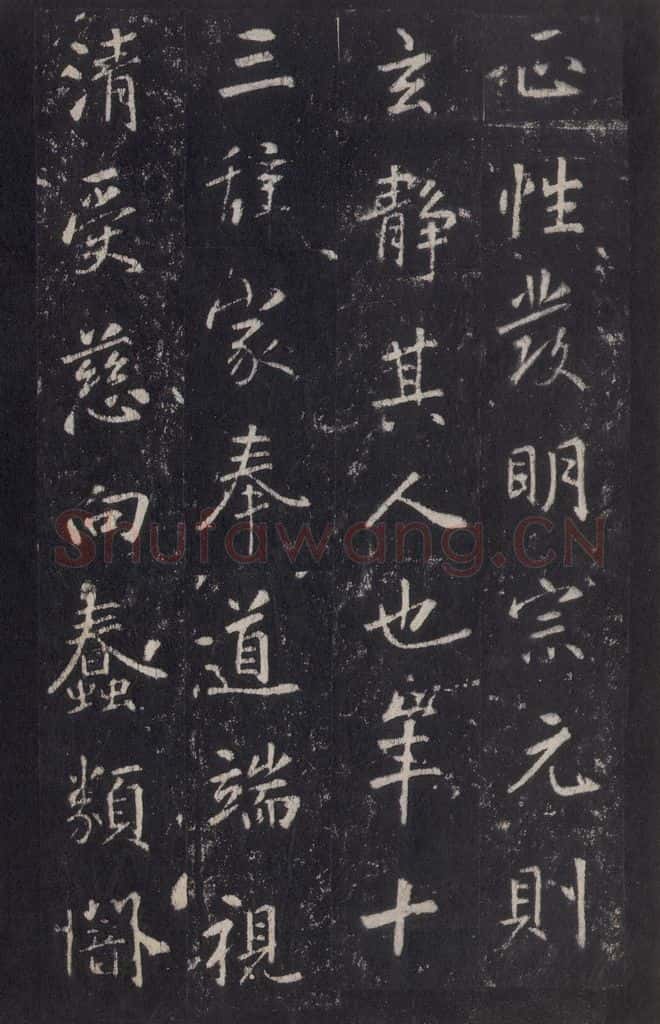 正性發明宗元則
玄靜其人也年十
三辭家奉道端視
清受慈向蠢類
Shufawang.CN